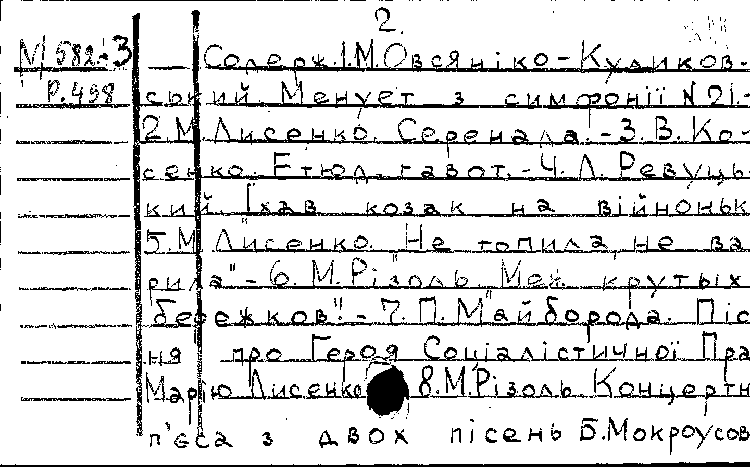 2.
М 582.-3 — Содерж. 1. М. Овсяніко-Куликов-
Р.498 ський. Менует з симфонії N 21.-
2. М. Лисенко. Серенада.-3. В. Ко-
сенко. Етюд-гавот.-4. Л. Ревуць-
кий. Їхав козак на війноньк
5. М. Лисенко. "Не топила, не ва
рила"-6. М. Різоль "Меж крутых
бережков".-7. П. Майборода. Піс
ня про Героя Соціалістичної Пра
Марію Лисенко 8. М. Різоль Концертн
п'єса з двох пісень Б. Мокроусов